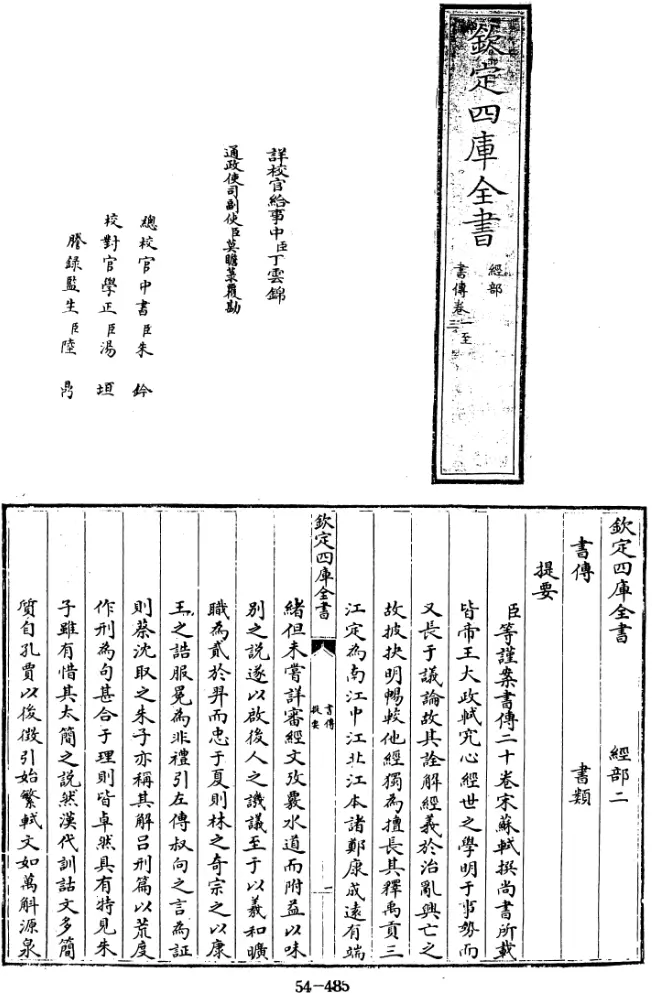 欽定四庫全書
經部
書傳卷一至三
詳校官給事中臣丁雲錦
通政使司副使臣莫瞻菉覆勘
總校官中書臣朱鈐
校對官學正臣湯垣
謄錄監生臣陸
欽定四庫全書 經部二
書傳 書類
提要
臣等謹案書傳二十卷宋蘇軾撰尚書所載
皆帝王大政軾究心經世之學明于事勢而
又長于議論故其詮解經義於治亂興亡之
故披抉明暢較他經獨為擅長其釋禹貢三
江定為南江中江北江本諸鄭康成遠有端
欽定四庫全書
書傳
提要
緒但未嘗詳審經文攷覈水道而附益以味
別之說遂以啟後人之譏議至于以羲和曠
職為貳於羿而忠于夏則林之奇宗之以康
王之誥服冕為非禮引左傳叔向之言為証
則蔡沈取之朱子亦稱其解呂刑篇以荒度
作刑為句甚合于理則皆卓然具有特見朱
子雖有惜其太簡之說然漢代訓詁文多簡
質自孔賈以後徵引始繁軾文如萬斛源泉
54-485